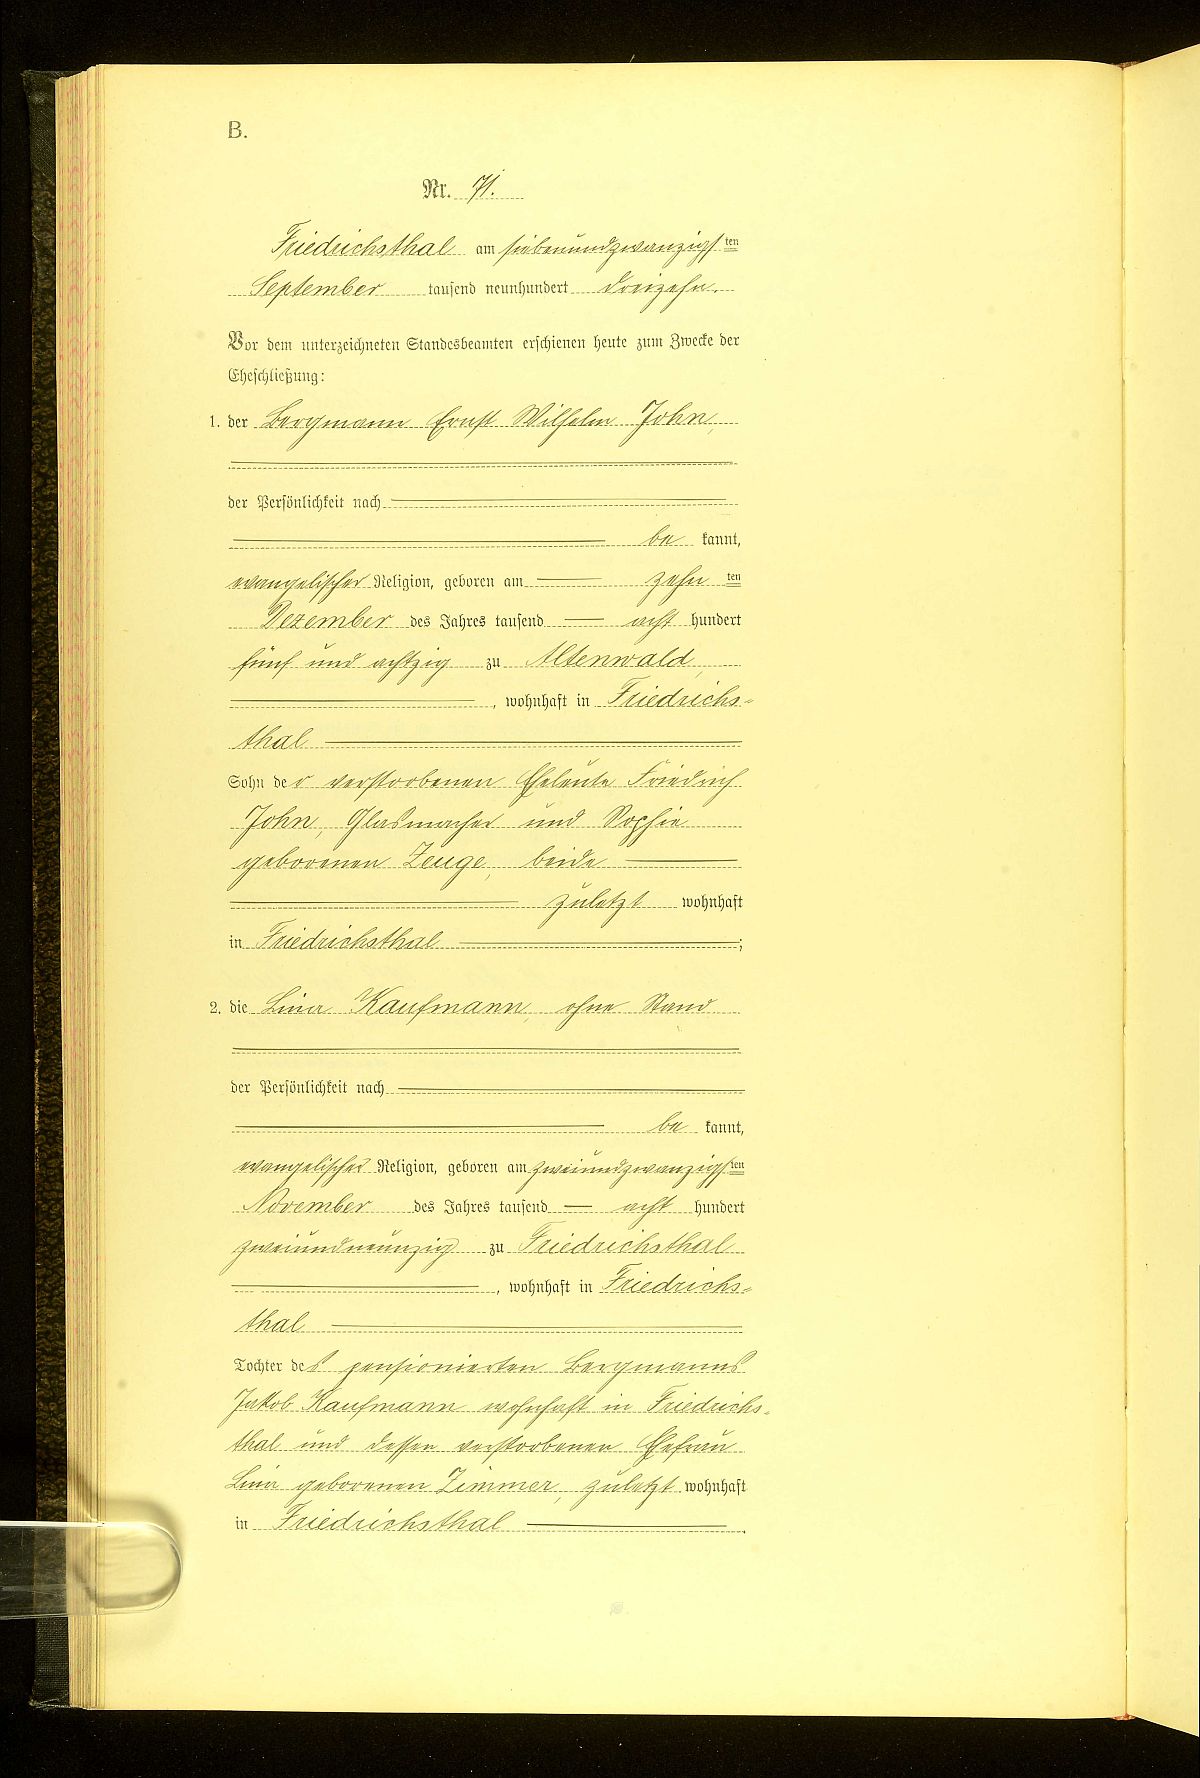 B.
Nr. 71.
Friedrichsthal am siebenundzwanzigsten
September tausend neunhundert dreizehn.
Vor dem unterzeichneten Standesbeamten erschienen heute zum Zwecke der
Eheschließung:
1. der Bergmann Ernst Wilhelm John,
der Persönlichkeit nach
be kannt,
evangelischer Religion, geboren am zehn ten
Dezember des Jahres tausend acht hundert
fünf und achtzig zu Altenwald,
, wohnhaft in Friedrichs-
thal
Sohn der verstorbenen Eheleute Friedrich
John, Glasmacher und Sophie
geborenen Zeuge, beide
zuletzt wohnhaft
in Friedrichsthal ;
2. die Lina Kaufmann, ohne Stand
der Persönlichkeit nach
be kannt,
evangelischer Religion, geboren am zweiundzwanzigsten
November des Jahres tausend acht hundert
zweiundneunzig zu Friedrichsthal
, wohnhaft in Friedrichs-
thal
Tochter des pensionierten Bergmanns
Jakob Kaufmann wohnhaft in Friedrichs-
thal und dessen verstorbenen Ehefrau
Lina geborenen Zimmer, zuletzt wohnhaft
in Friedrichsthal .